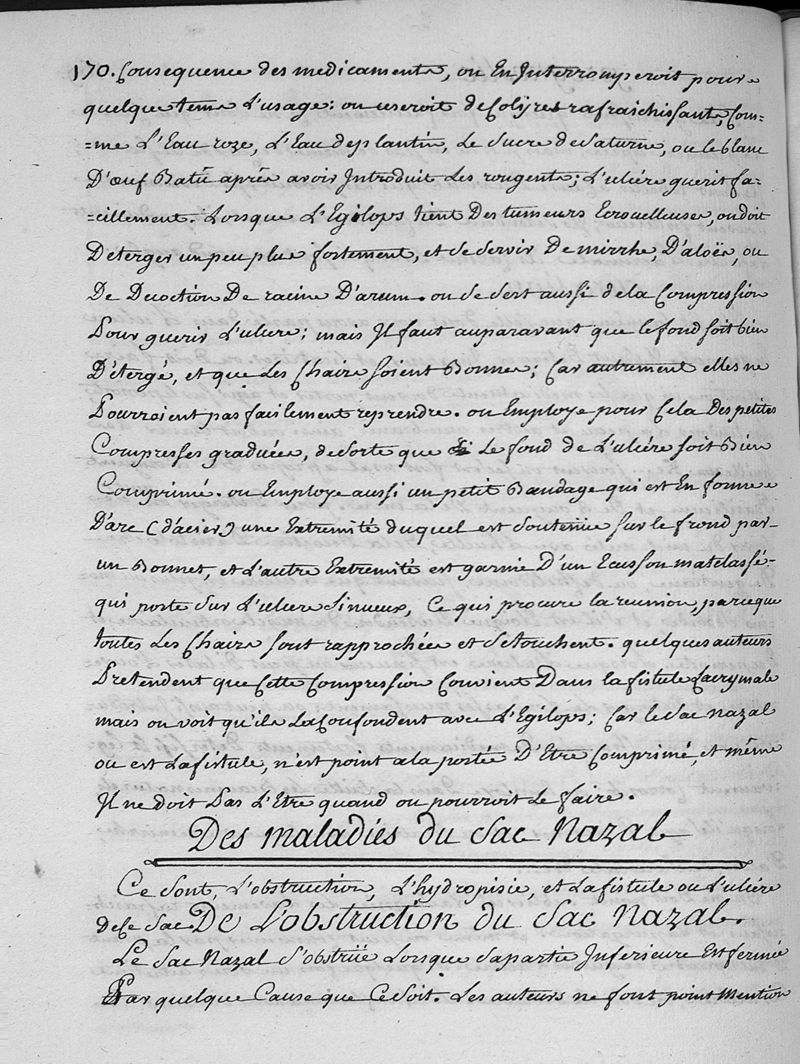 170. Consequence des medicaments, on En Interromperoit pour
quelque tems L'usage: on useroit de Colÿres rafraischissants, Com=
=me L'Eau roze, L'Eau de plantin, Le Sucre de Saturne, ou le blanc
D'œuf Batü aprés avoir Introduit Les rougents; L'ulcére guerit fa=
=cillement. Lorsque L'Egilops tient Des tumeurs Ecrouelleuses, on doit
Deterger un peu plus fortement, et se servir De mirrhe, D'aloës, ou
De Decoction De racine D'arum. on se sert aussi de la Compression
Pour guerir L'ulcere; mais Il faut auparavant que le fond soit bien
Détergé, et que Les Chairs soient Bonnes; Car autrement elles ne
Pourroient pas facilement reprendre. on Employe pour Cela Des petites
Compresses graduées, de sorte que Le fond de L'ulcére soit Bien
Comprimé. on Employe aussi un petit Bandage qui est En forme
D'arc (d'acier) une Extremité duquel est soutenüe sur le frond par
un Bonnet, et L'autre Extremité est garnie D'un Ecusson matelassé
qui porte sur L'ulcere sinueux, Ce qui procure la reunion, parceque
toutes Les Chairs sont rapprochées et se touchent. quelques auteurs
Pretendent que Cette Compression Convient Dans la fistule Lacrymale
mais on voit qu'ils La Confondent avec L'Egilops; Car le Sac nazal
ou est La fistule, n'est point a la portée D'Etre Comprimé, et même
Il ne doit Pas L'Etre quand on pourroit Le faire.
Des maladiés du Sac Nazal
Ce sont, L'obstruction, L'hydropisie, et La fistule ou L'ulcére
de Ce Sac. De L'obstruction du Sac Nazal.
Le Sac Nazal S'obstrüe Lorsque sa partie Inferieure Est fermée
Par quelque Cause que Ce soit. Les auteurs ne font point mention